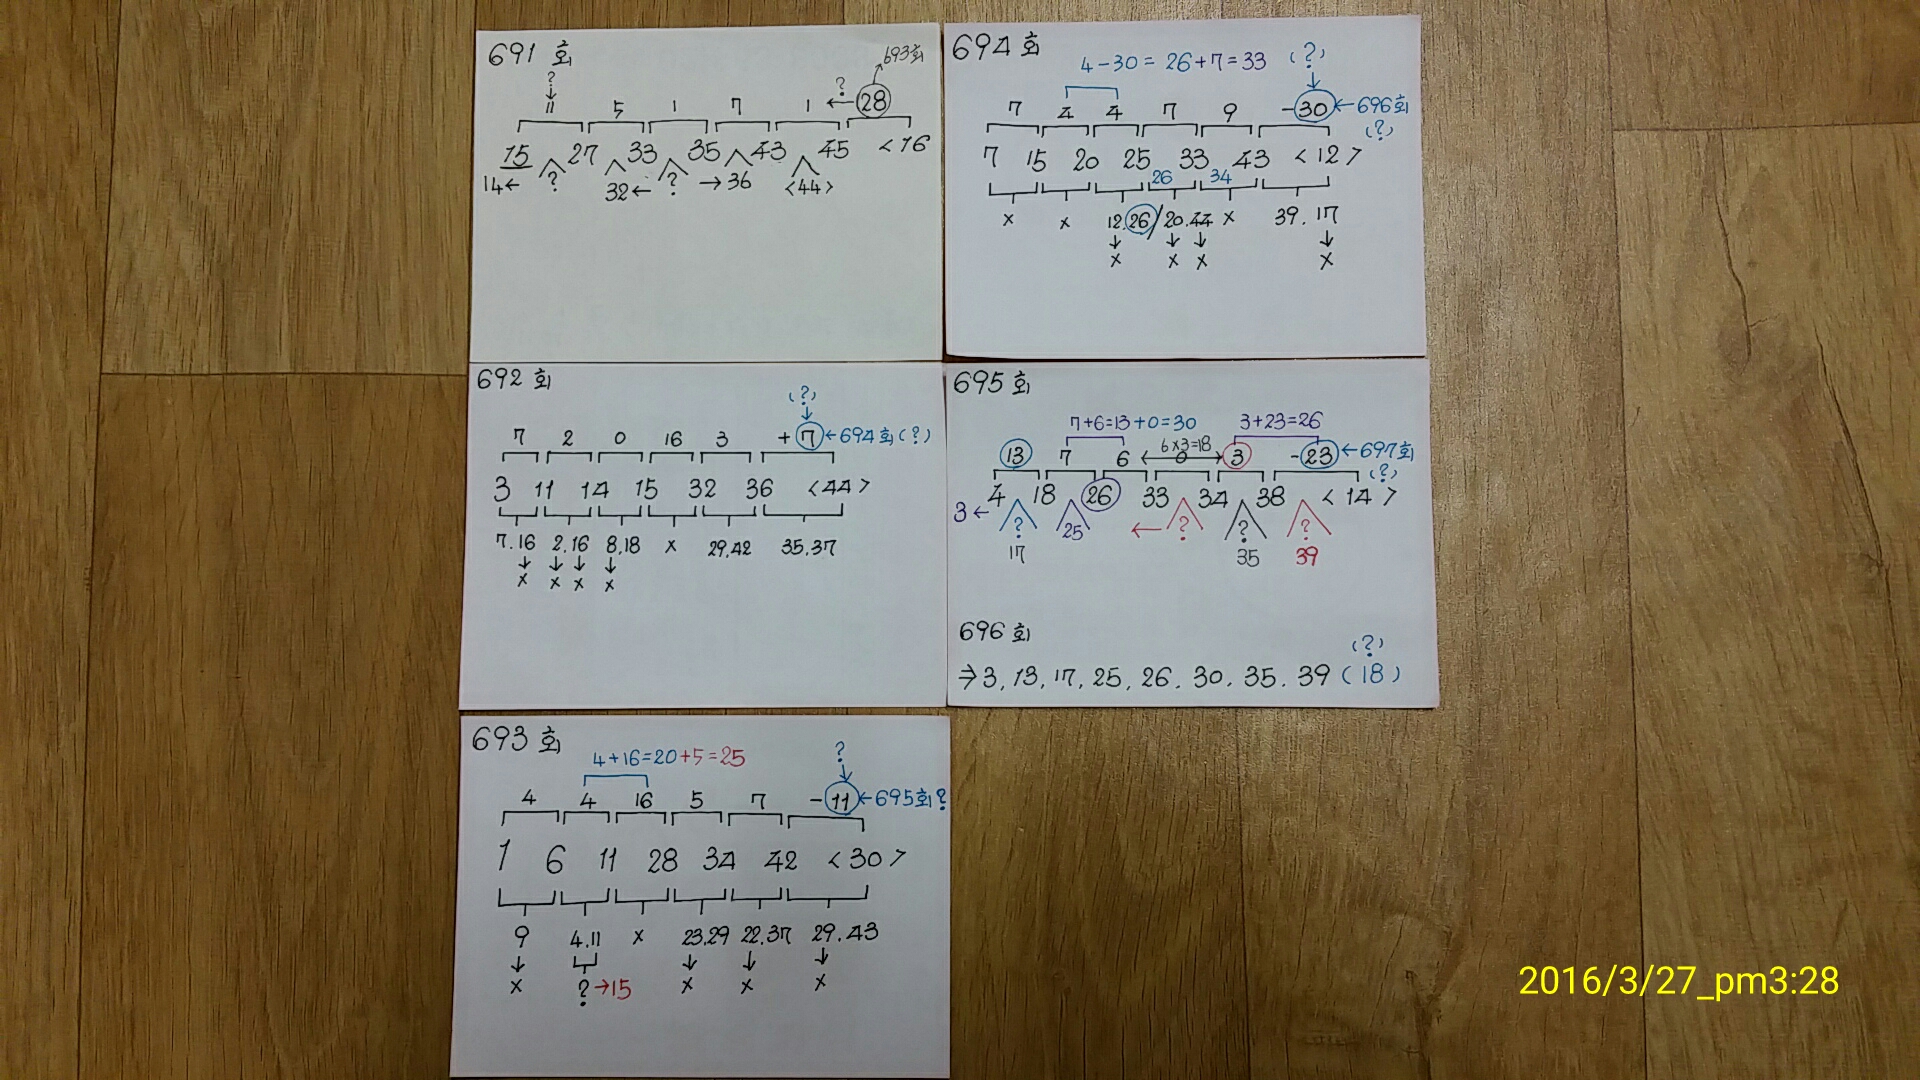 691 회
693회
?
?
11 5 1 7 1 ← 28
15 27 33 35 43 45 <16
14← ? 32← ? →36 <44>
692 회
(?)
7 2 0 16 3 +7 ←694회(?)
3 11 14 15 32 36 <44>
7.16 2.16 8.18 x 29.42 35.37
↓ ↓ ↓ ↓
x x x x
693 회
4+16=20+5=25
?
4 4 16 5 7 -11 ←695회?
1 6 11 28 34 42 <30>
9 4.11 x 23.29 22.37 29.43
↓ ↓ ↓ ↓
x ?→15 x x x
694 회
4-30=26+7=33 (?)
7 4 4 7 9 -30 ←696회
(?)
7 15 20 25 33 43 <12>
26 34
x x 12.26/20.44 x 39.17
↓ ↓ ↓ ↓
x x x x
695 회
7+6=13+0=30 3+23=26
6x3=18
13 7 6 ←0→ 3 -23 ←697회
(?)
4 18 26 33 34 38 <14>
3← ? 25 ← ? ? ?
17 35 39
696 회
(?)
⇒3, 13, 17, 25, 26, 30, 35, 39 (18)
2016/3/27_pm3:28